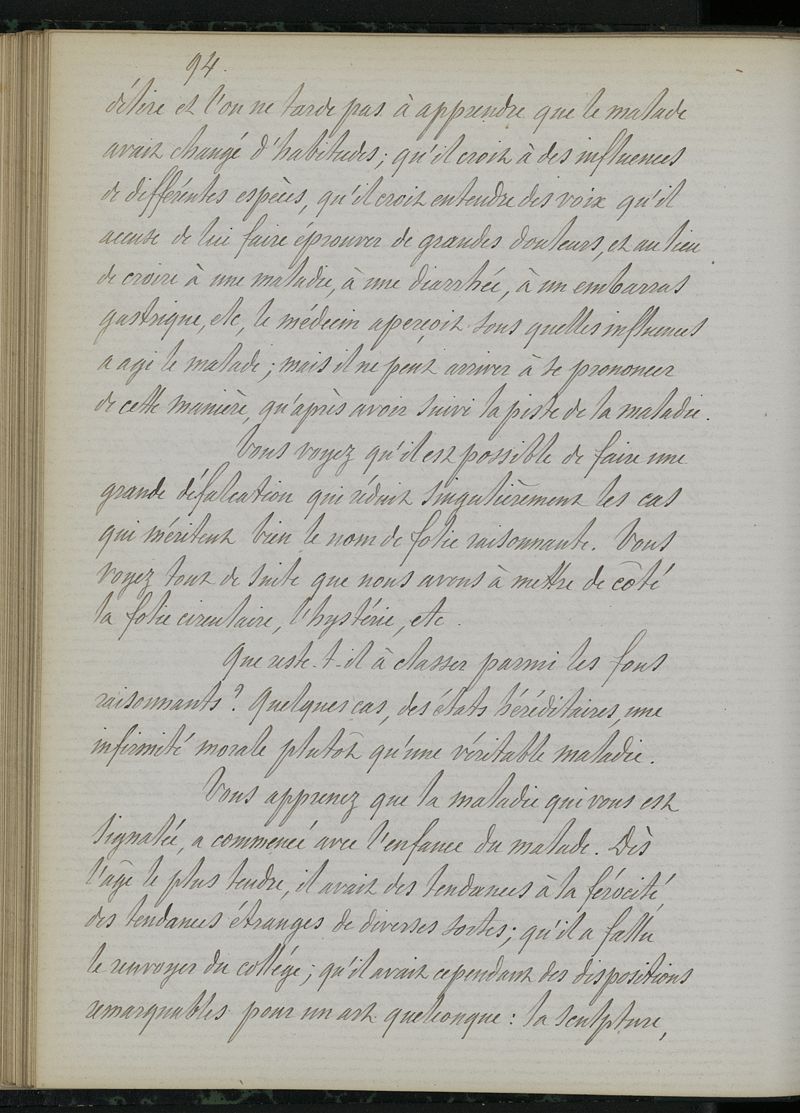 94.
délire et l'on ne tarde pas à apprendre que le malade
avait changé d'habitudes; qu'il croit à des influences
de différentes espèces, qu'il croit entendre des voix qu'il
accuse de lui faire éprouver de grandes douleurs, et au lieu
de croire à une maladie, à une diarrhée, à un embarras
gastrique, etc, le médecin aperçoit sous quelles influences
a agi le malade; mais il ne peut arriver à se prononcer
de cette manière, qu'après avoir suivi la piste de la maladie.
Vous voyez qu'il est possible de faire une
grande défalcation qui réduit singulièrement les cas
qui méritent bien le nom de folie raisonnante. Vous
voyez tout de suite que nous avons à mettre de côté
la folie circulaire, l'hystérie, etc.
Que reste-t-il à classer parmi les fous
raisonnants? Quelques cas, des états héréditaires, une
infirmité morale plutôt qu'une véritable maladie.
Vous apprenez que la maladie qui vous est
signalée, a commencé avec l'enfance du malade. Dès
l'âge le plus tendre, il avait des tendances à la férocité,
des tendances étranges de diverses sortes; qu'il a fallu
le renvoyer du collège; qu'il avait cependant des dispositions
remarquables pour un art quelconque: la sculpture,